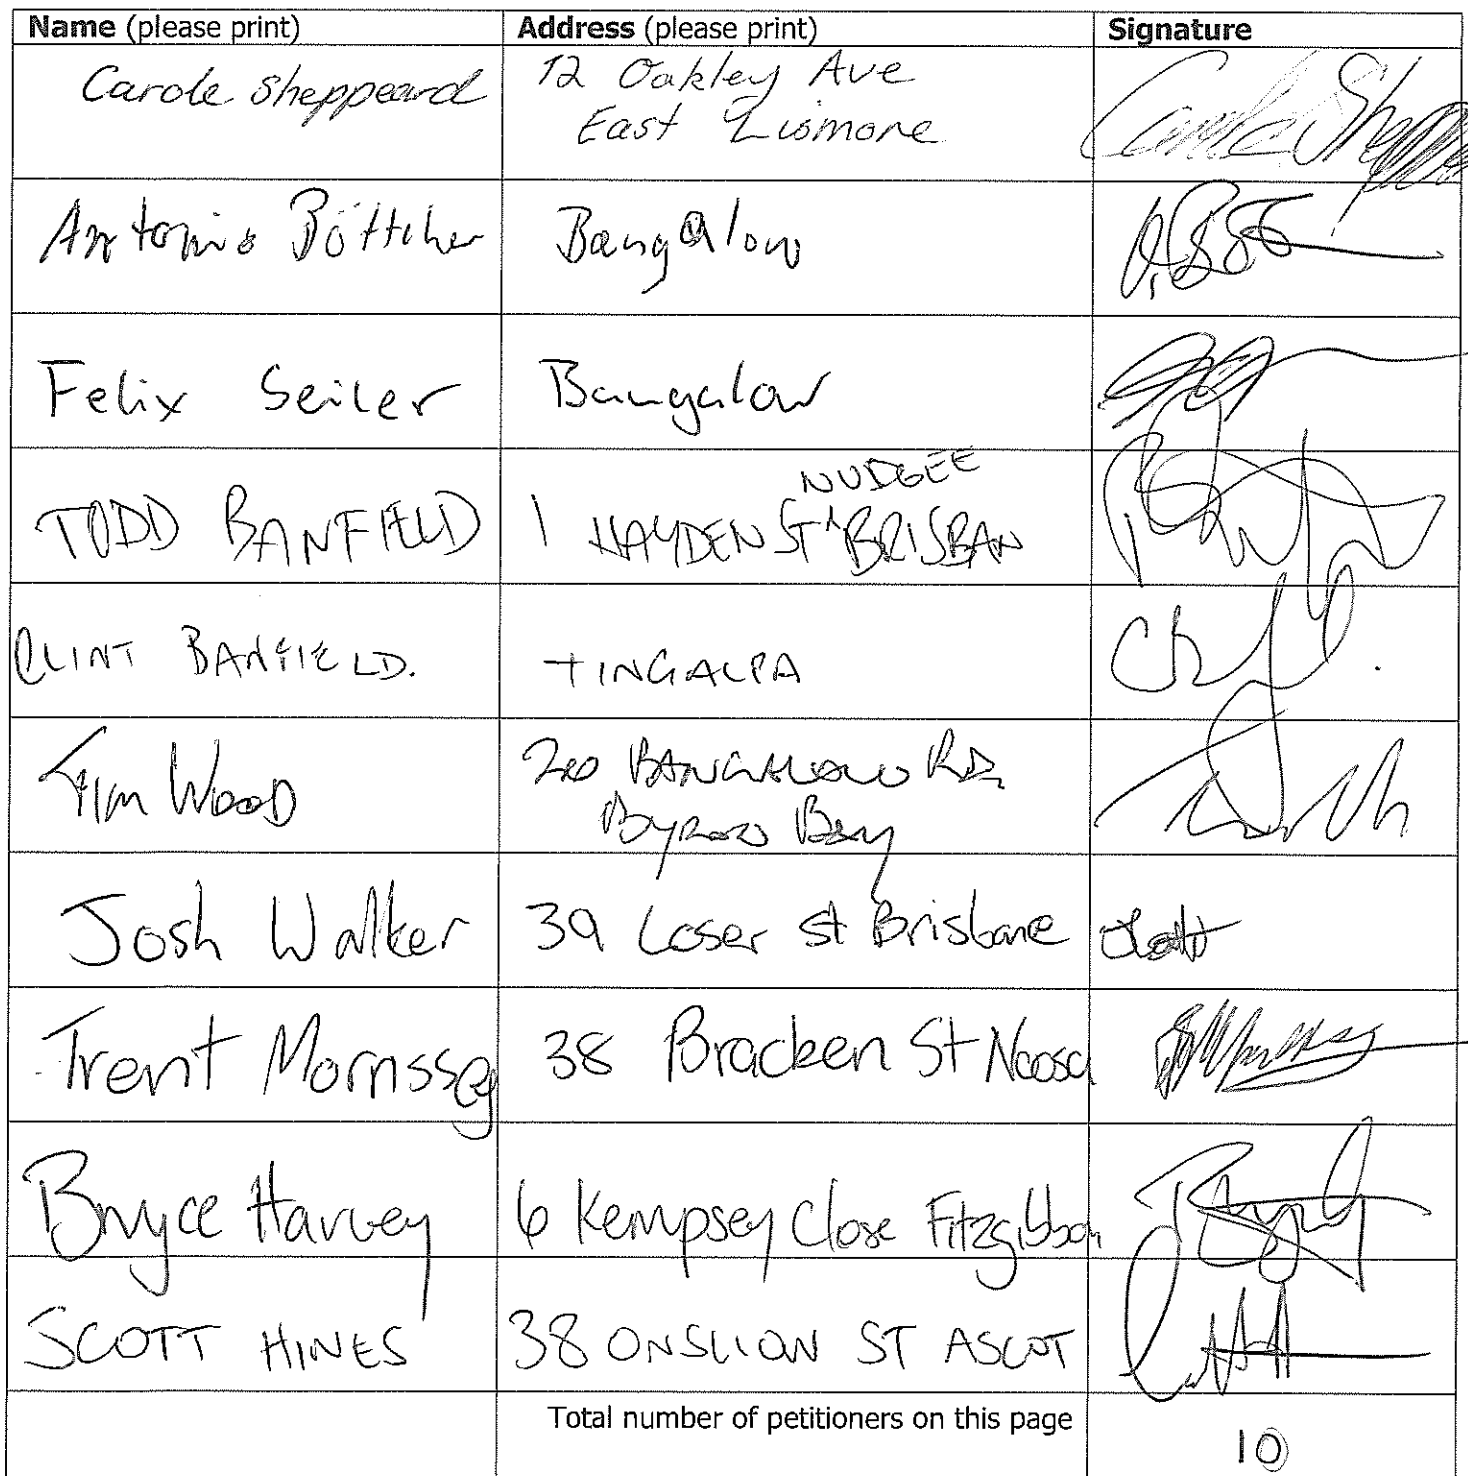 Name (please print) Address (please print) Signature
Carole Sheppeard 12 Oakley Ave
East Lismore
Antonio Böttcher Bangalow
Felix Seiler Bangalow
NUDGEE
TODD BANFIELD 1 HAYDEN ST ^ BRISBAN
CLINT BANFIELD. TINGALPA
Tim Wood BANGALOW RD
Byron Bay
Josh Walker 39 Loser st Brisbane
Trent Morrissey 38 Bracken St Noosa
Bryce Harvey 6 Kempsey Close Fitzgibbon
SCOTT HINES 38 ONSLION ST ASCOT
Total number of petitioners on this page 10